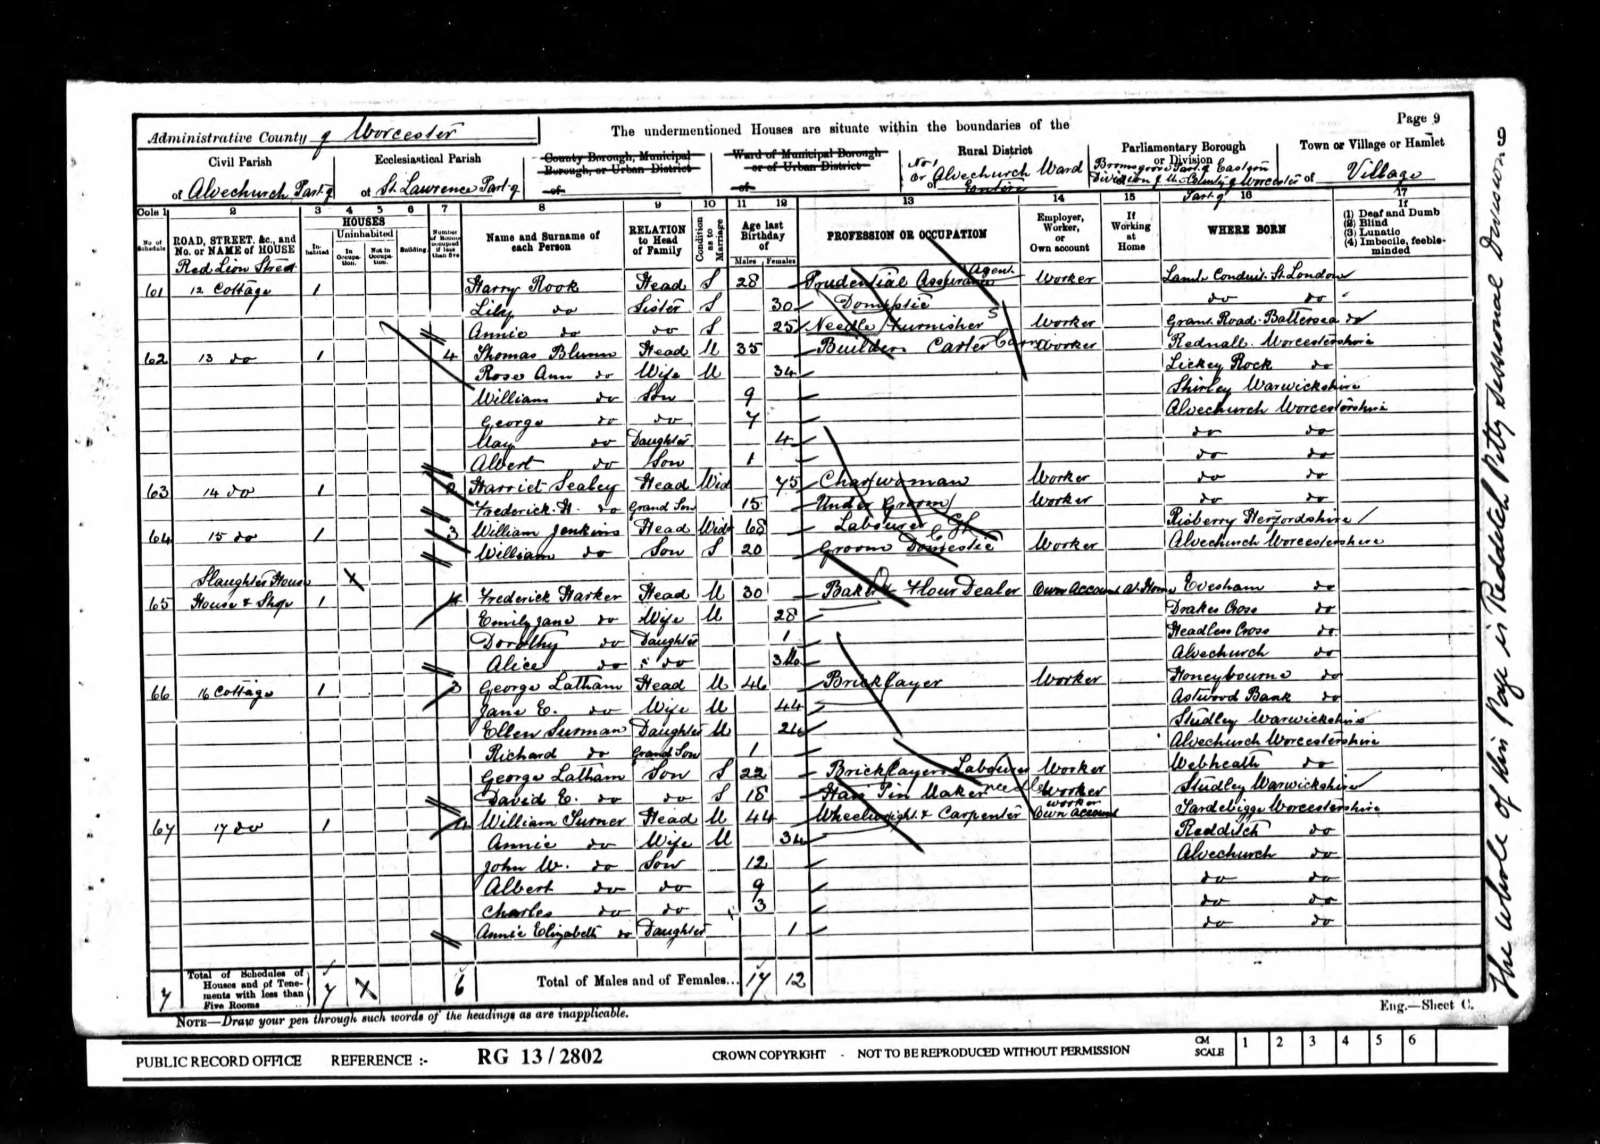 Page 9
Administrative County of Worcester
The undermentioned Houses are situate within the boundaries of the
Civil Parish
of Alvechurch Part of
Ecclesiastical Parish
of St. Lawrence Part of
County Borough, Municipal Borough, or Urban District
of
Ward of Municipal Borough or of Urban District
of
Rural District
No 1
or Alvechurch Ward
of Entire
Parliamentary Borough or Division
Bromsgrove Part of Eastern
Division of the County of Worcester
Part of
Town or Village or Hamlet
of Village
Cols 1 2 3 4 5 6 7 8 9 10 11 12 13 14 15 16 17
No. of Schedule
ROAD, STREET, &c., and No. or NAME of HOUSE
HOUSES
Inhabited
Uninhabited
In Occupation.
Not in Occupation.
Building
Number of Rooms occupied if less than five
Name and Surname of each Person
RELATION to Head of Family
Condition as to Marriage
Age last Birthday of
Males Females
PROFESSION OR OCCUPATION
Employer, Worker, or Own account
If Working at Home
WHERE BORN
If
(1) Deaf and Dumb
(2) Blind
(3) Lunatic
(4) Imbecile, feeble-minded
Red Lion Street
61 12 Cottage 1 Harry Rook Head S 28 Prudential Assurance Agent Worker Lamb Conduit St. London
Lily do Sister S 30 Domestic do do
Annie do do S 25 Needle Furnisher Worker Grant Road Battersea do
62 13 do 1 4 Thomas Blunn Head M 35 Builders Carter Worker Rednall Worcestershire
Rose Ann do Wife M 34 Lickey Rock do
William do Son 9 Shirley Warwickshire
George do do 7 Alvechurch Worcestershire
May do Daughter 4 do do
Albert do Son 1 do do
63 14 do 1 Harriet Sealey Head Wid 75 Charwoman Worker do do
Frederick H. do Grand Son 15 Under Groom Worker do do
64 15 do 1 3 William Jenkins Head Widr 68 Labourer Risberry Herefordshire
William do Son S 20 Groom Domestic Worker Alvechurch Worcestershire
Slaughter House X
65 House & Shop 1 4 Frederick Harker Head M 30 Baker & Flour Dealer Own Account At Home Evesham do
Emily Jane do Wife M 28 Drakes Cross do
Dorothy do Daughter 1 Headless Cross do
Alice do do 3 Mo Alvechurch do
66 16 Cottage 1 3 George Latham Head M 46 Bricklayer Worker Honeybourne do
Jane E. do Wife M 44 Astwood Bank do
Ellen Surman Daughter M 24 Studley Warwickshire
Richard do Grand Son 1 Alvechurch Worcestershire
George Latham Son S 22 Bricklayers Labourer Worker Webheath do
David E. do do S 18 Hair Pin Maker Worker Studley Warwickshire
67 17 do 1 4 William Turner Head M 44 Wheelwright & Carpenter worker Own Account Tardebigge Worcestershire
Annie do Wife M 34 Redditch do
John W. do Son 12 Alvechurch do
Albert do do 9 do do
Charles do do 3 do do
Annie Elizabeth do Daughter 1 do do
7 Total of Schedules of Houses and of Tenements with less than Five Rooms 7 X 6 Total of Males and of Females... 17 12
NOTE—Draw your pen through such words of the headings as are inapplicable.
Eng.—Sheet C.
The whole of this Page is Redditch Petty Sessional Divisions
PUBLIC RECORD OFFICE REFERENCE :- RG 13/2802 CROWN COPYRIGHT - NOT TO BE REPRODUCED WITHOUT PERMISSION
CM SCALE 1 2 3 4 5 6